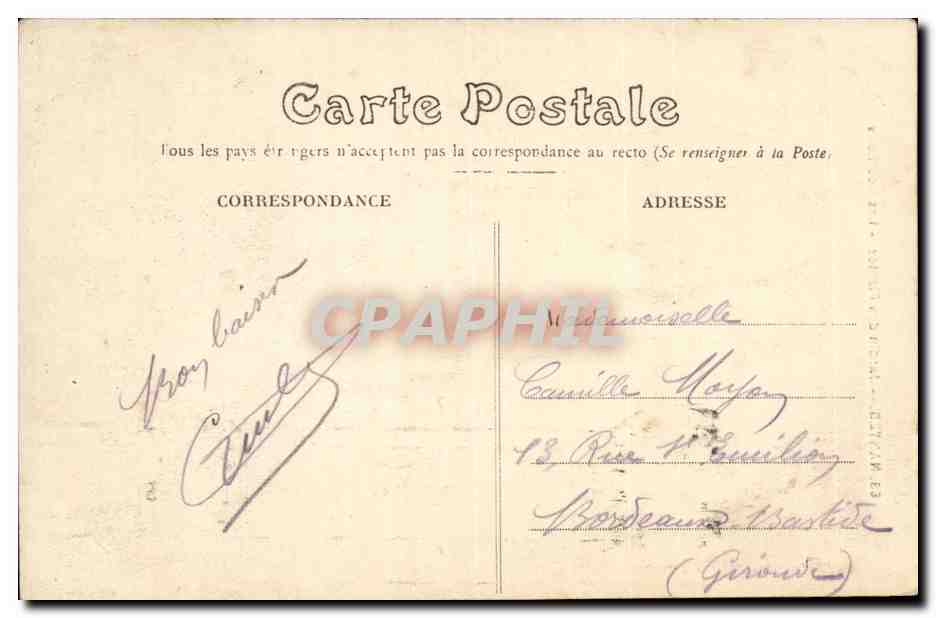 Carte Postale
Tous les pays étrangers n'acceptent pas la correspondance au recto (Se renseigner à la Poste)
CORRESPONDANCE
ADRESSE
Bon baiser
CPAPHIL
Mademoiselle
Camille
13, Rue St Emilion
Bordeaux Bastide
(Gironde)